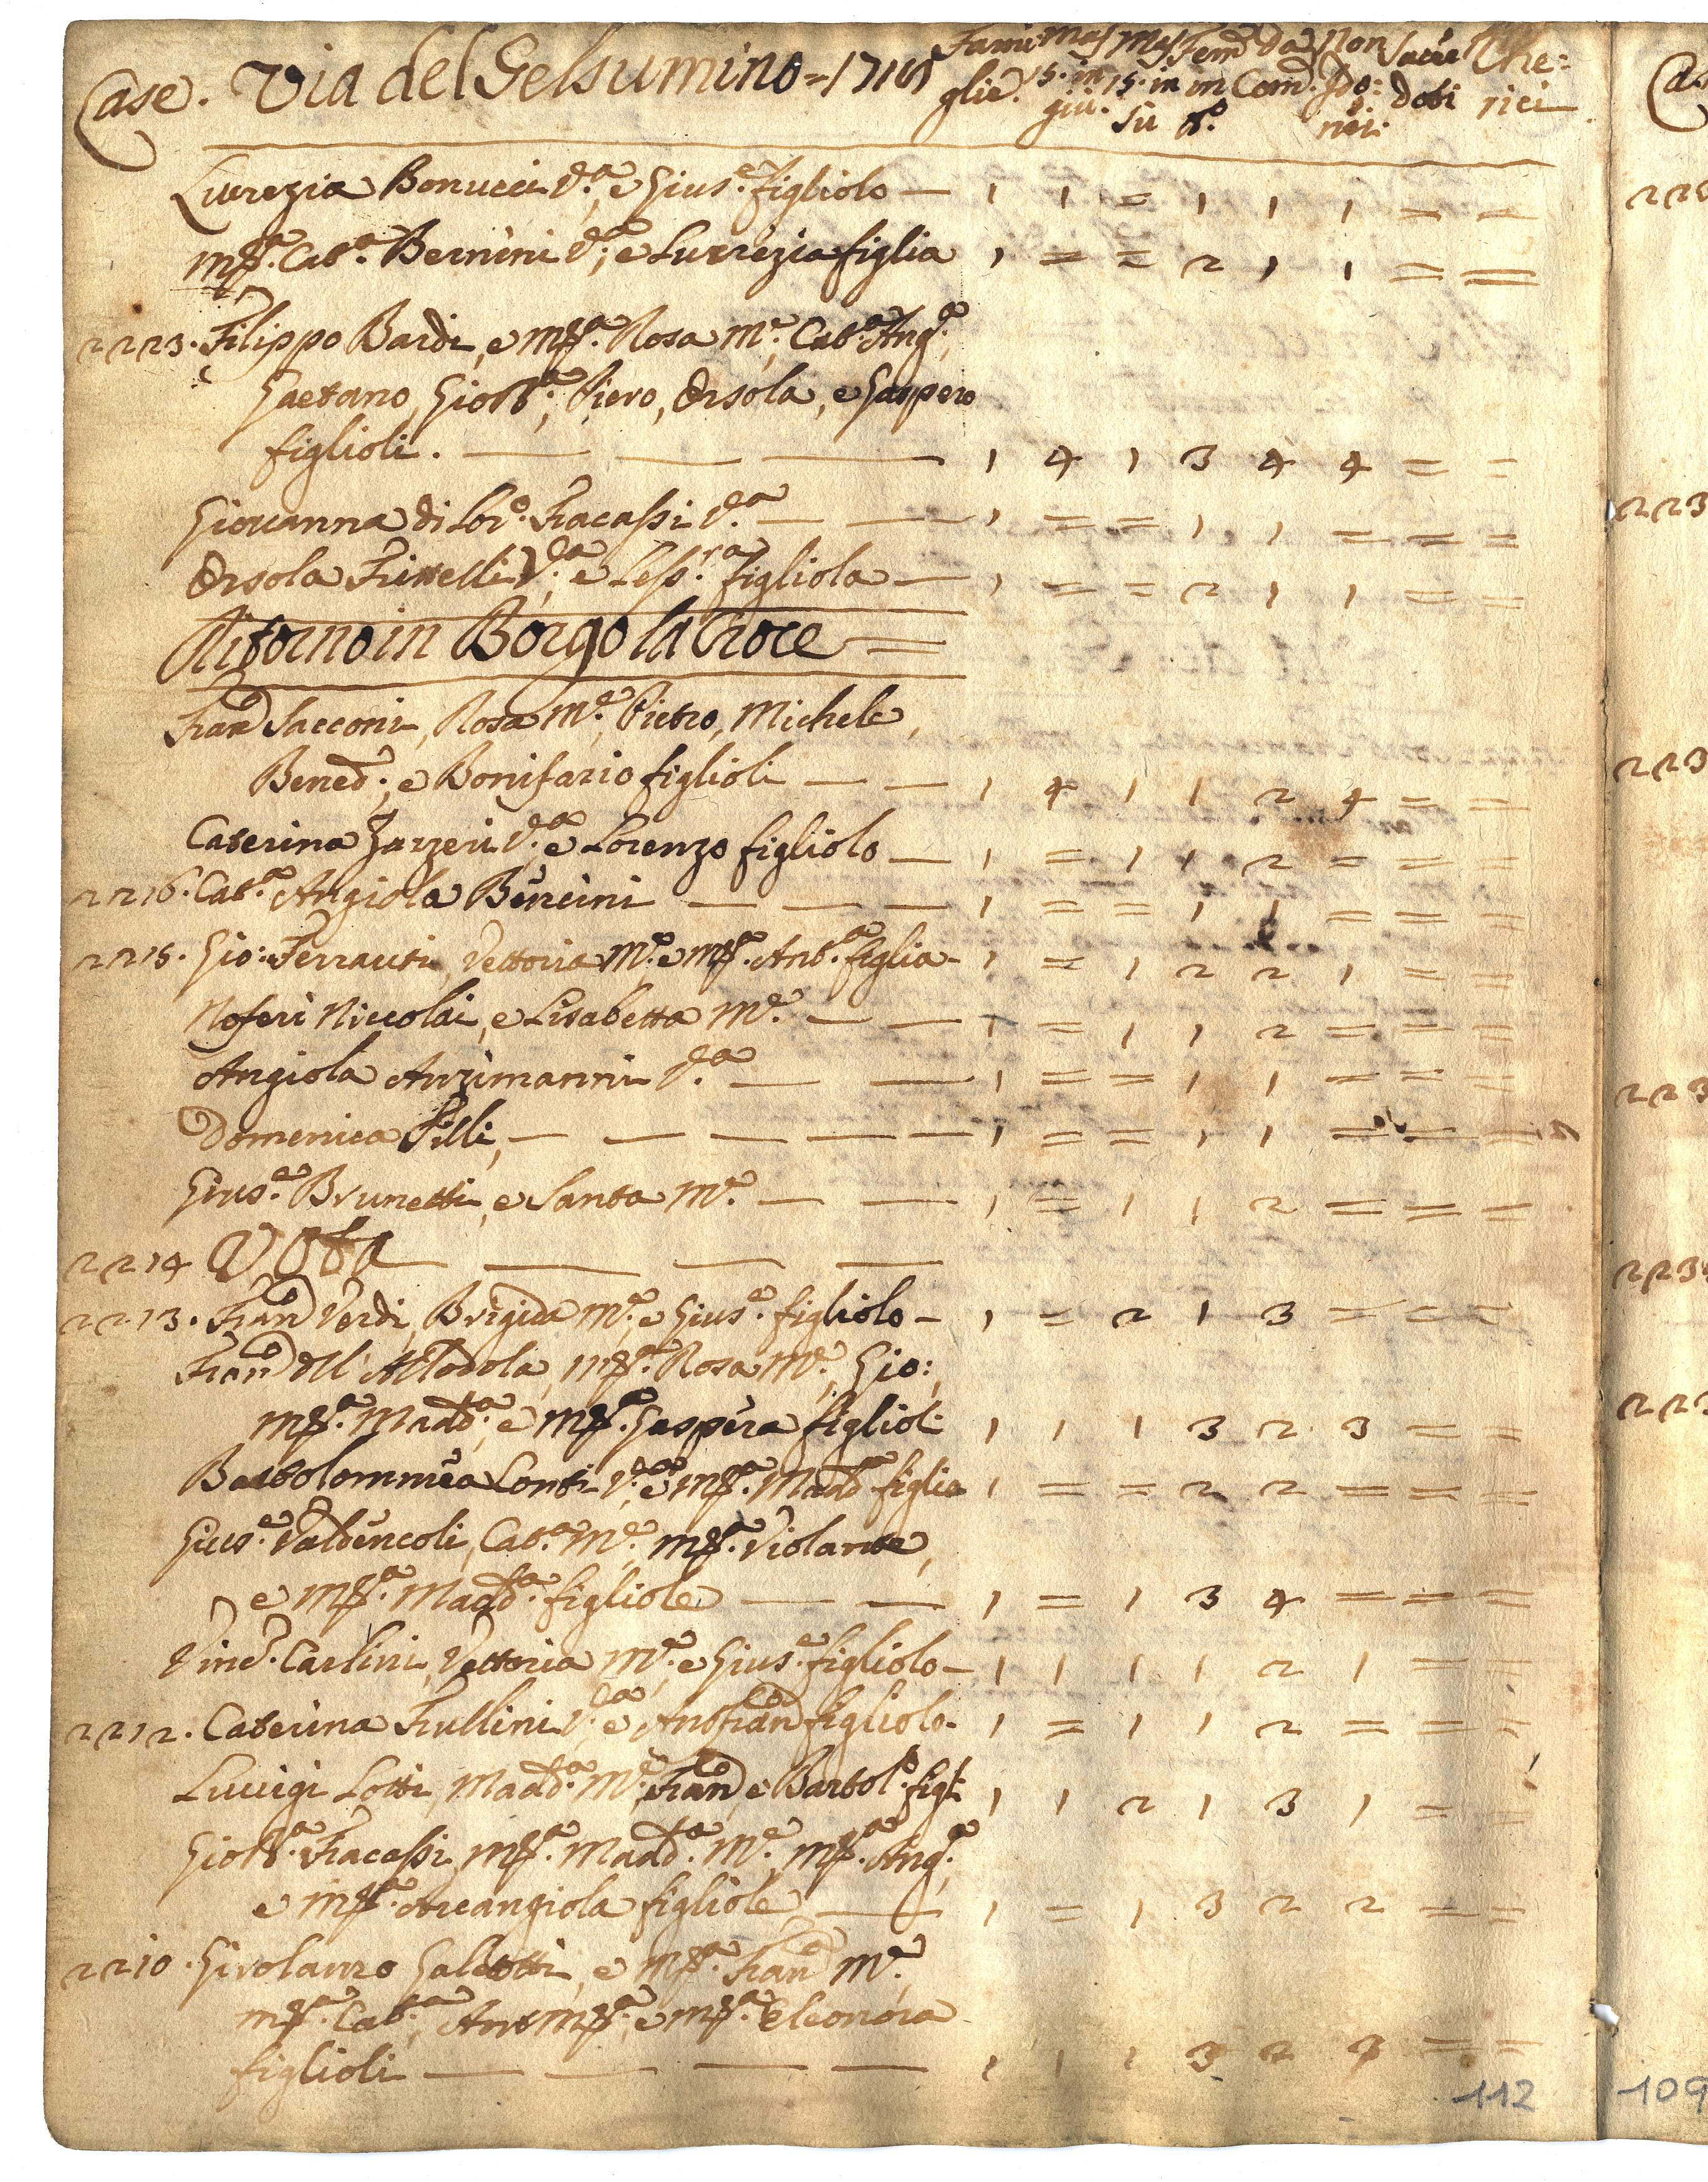 Case. Via del Gelsumino = 171
Fami glie. Mas 15. in giù. Mas 15. in sù Fem in n.o da Com. Non Ido: nei. Sacer doti Che: rici
Lucrezia Bonucci V.a, e Gius.e figliolo — 1 1 = 1 1 1 = =
M.a Cat.a Bernini V.a, e Lucrezia figlia 1 = = 2 1 1 = =
2223. Filippo Bardi, e M.a Rosa M.e, Cat.a Ang.a,
Gaetano, Gio Bt.a, Piero, Orsola, e Gaspero
figlioli. — — — 1 4 1 3 4 4 = =
Giovanna di Lor.o Fracassi V.a — — 1 = = 1 1 = = =
Orsola Frittelli V.a, e Less.ra figliola — 1 = = 2 1 1 = =
Ritorno in Borgo la Croce =
Fran.o Sacconi, Rosa M.e, Pietro, Michele,
Bened.o, e Bonifazio figlioli — — 1 4 1 1 2 4 = =
Caterina Zazzeri V.a e Lorenzo figliolo — 1 = 1 1 2 = = =
2216. Cat.a Angiola Bencini — — — 1 = = 1 1 = = =
2215. Gio: Ferrauti, Vettoria M.e e M.a Ant.a figlia - 1 = 1 2 2 1 = =
Noferi Niccolai, e Lisabetta M.e — — 1 = 1 1 2 = = =
Angiola Anzimanni V.a — — 1 = = 1 1 = = =
Domenica Pilli, — — — — — 1 = = 1 1 = = =
Gius.e Brunetti, e Santa M.e — — 1 = 1 1 2 = = =
2214 Vota — — — —
2213. Fran.o Verdi, Brigida M.e, e Gius.e figliolo - 1 = 2 1 3 = = =
Fran.o dell' Allodola, M.a Rosa M.e, Gio:,
M.a Madd.a, e M.a Gaspera figlioli 1 1 1 3 2 3 = =
Bartolommea Conti V.a, e M.a Madd.a figlia 1 = = 2 2 = = =
Gius.e Valdencoli, Cat.a M.e, M.a Violante,
e M.a Madd.a figliole — — 1 = 1 3 4 = = =
Vinc.o Carlini, Vettoria M.e, e Gius.e figliolo - 1 1 1 1 2 1 = =
2212. Caterina Frullini V.a, e Ant Fran.o figliolo - 1 = 1 1 2 = = =
Luuigi Lotti, Madd.a M.e, Fran.o, e Bartol.o figli 1 1 2 1 3 1 = =
Gio Bt.a Fracassi, M.a Madd.a M.e, M.a Ang.a,
e M.a Arcangiola figliole, — 1 = 1 3 2 2 = =
2210. Girolamo Galeotti, e M.a Fran.a M.e
M.a Cat.a, Ant M.a, e M.a Eleonora
figlioli — — — — 1 1 1 3 2 3 = =
112
109